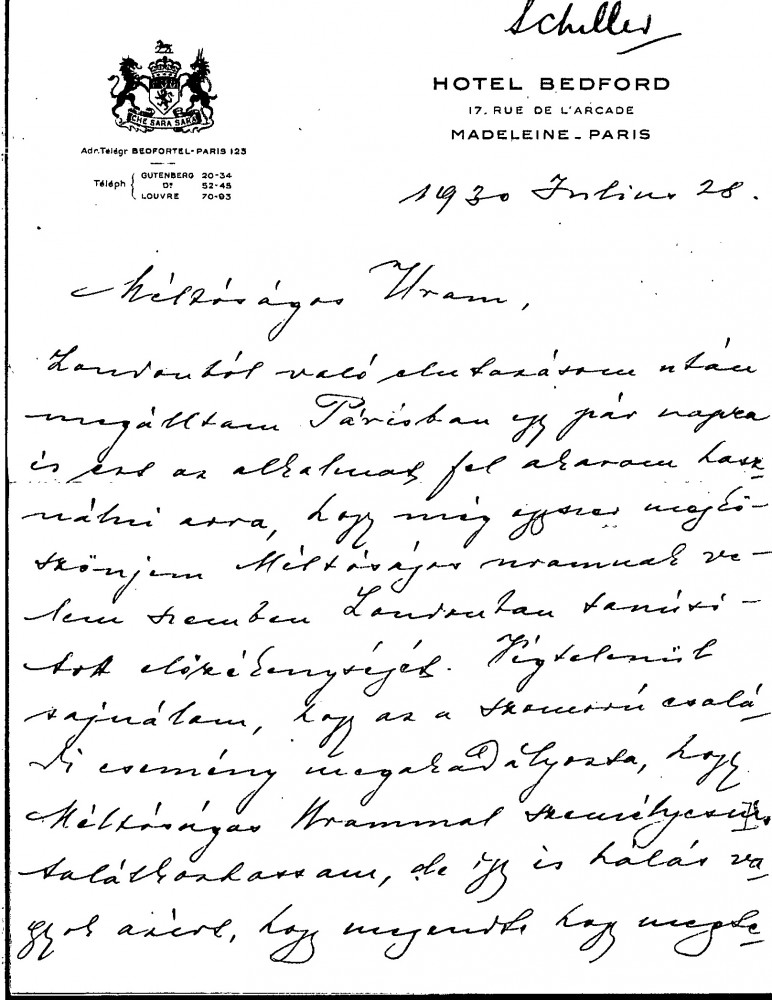 Schiller
HOTEL BEDFORD
17, RUE DE L'ARCADE
MADELEINE - PARIS
CHE SARA SARA
Adr. Télégr BEDFORTEL-PARIS 123
Téléph { GUTENBERG 20-34
Dº 52-45
LOUVRE 70-93
1930 Julius 28.
Méltóságos Uram,
Londonból való elutazásom után
megálltam Párisban egy pár napra
és ezt az alkalmat fel akarom hasz-
nálni arra, hogy még egyszer megkö-
szönjem Méltóságos uramnak ve-
lem szemben Londonban tanúsí-
tott előzékenységét. Végtelenül
sajnálom, hogy az a szomorú csalá-
di esemény megakadályozta, hogy
Méltóságos Urammal személyesen
találkozhassam, de így is hálás va-
gyok azért, hogy megendte hogy megte-